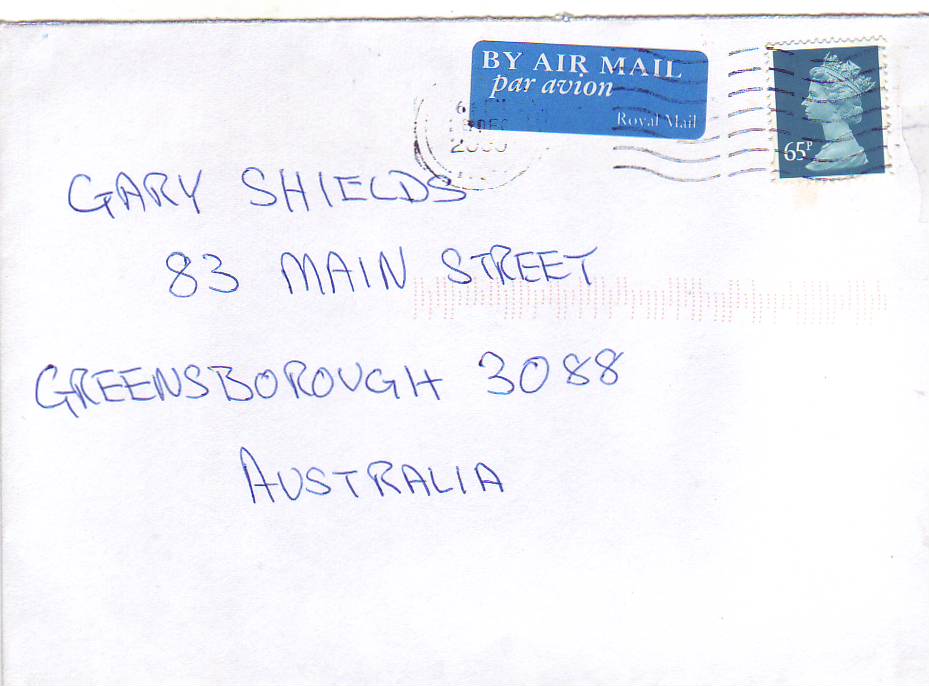 BY AIR MAIL
par avion
Royal Mail
65P
2000
GARY SHIELDS
83 MAIN STREET
GREENSBOROUGH 3088
AUSTRALIA